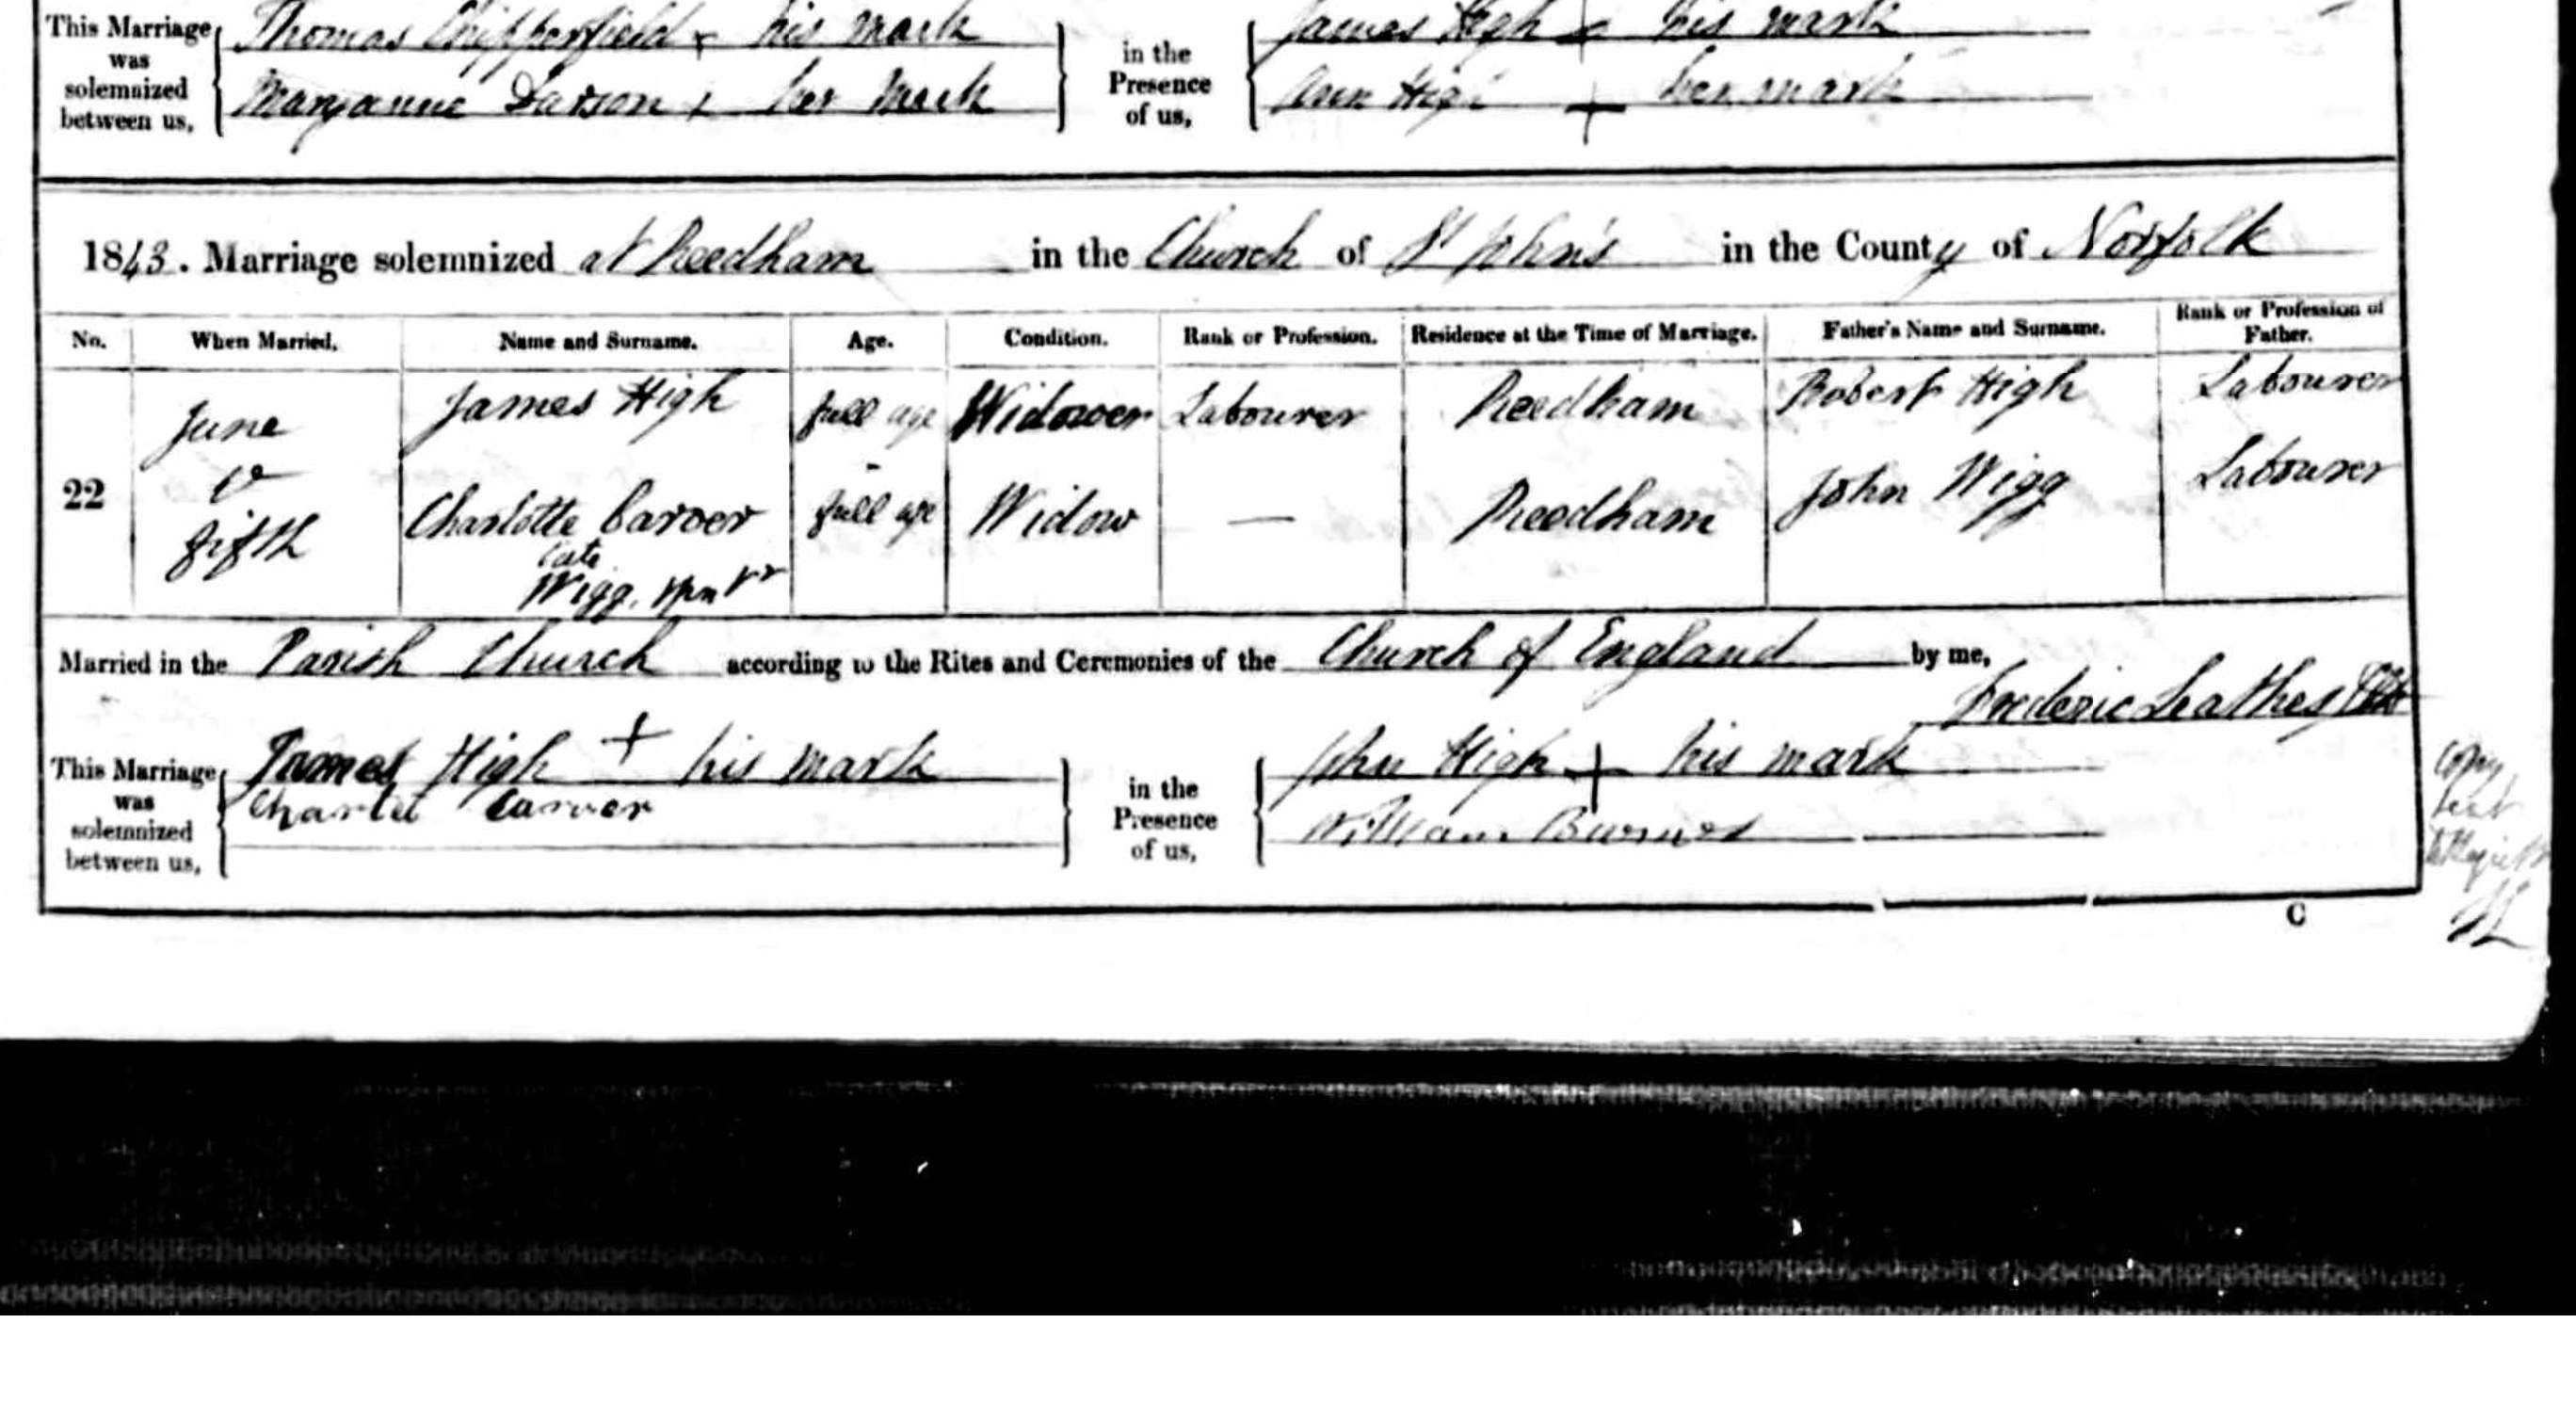 This Marriage was solemnized between us, Thomas Chipperfield + his mark
Maryanne Dawson + her mark
in the Presence of us, James High + his mark
Ann High + her mark
1843. Marriage solemnized at Reedham in the Church of St John's in the County of Norfolk
No. When Married. Name and Surname. Age. Condition. Rank or Profession. Residence at the Time of Marriage. Father's Name and Surname. Rank or Profession of Father.
22 June fifth James High full age Widower Labourer Reedham Robert High Labourer
Charlotte Carver late Wigg. full age Widow — Reedham John Wigg Labourer
Married in the Parish Church according to the Rites and Ceremonies of the Church of England by me,
Frederic Leathes
This Marriage was solemnized between us, James High + his mark
Carver
in the Presence of us, John High + his mark
William
C
Copy